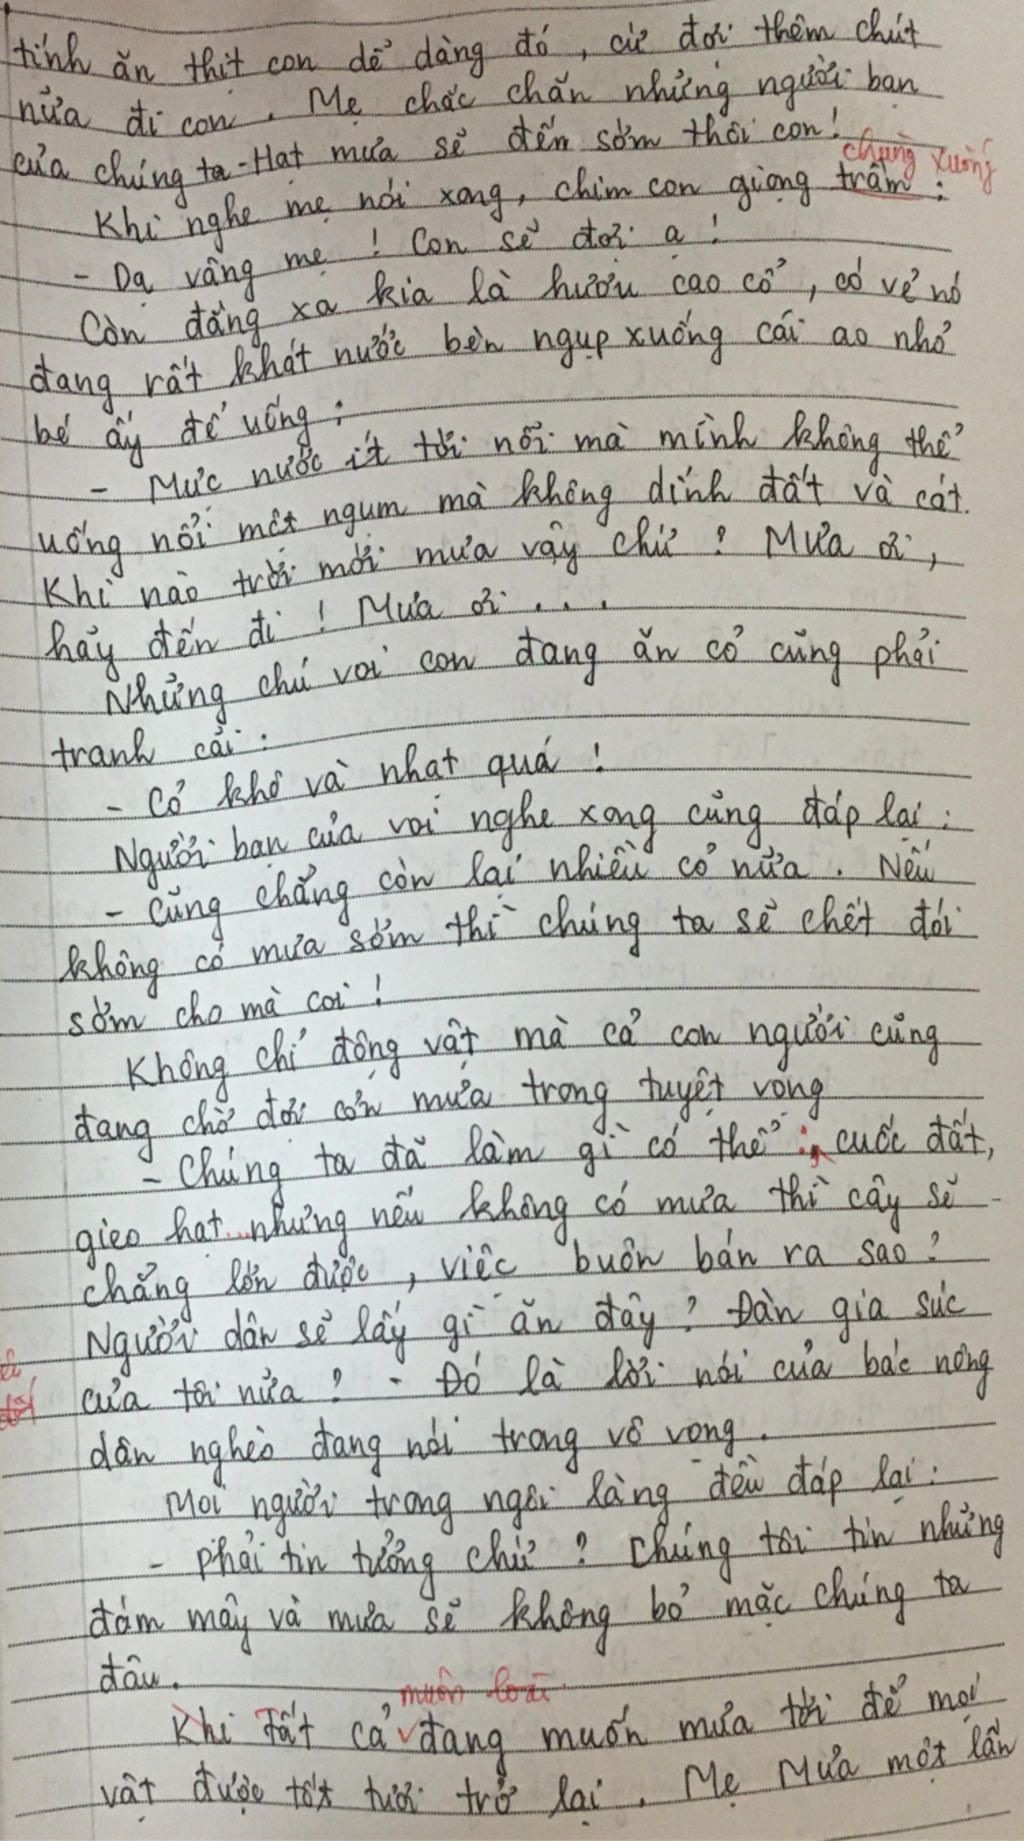 tính ăn thịt con dễ dàng đó, cứ đợi thêm chút
nữa đi con. Mẹ chắc chắn những người bạn
của chúng ta - Hạt mưa sẽ đến sớm thôi con!
chùng xuống
Khi nghe mẹ nói xong, chim con giọng trầm:
- Dạ vâng mẹ! Con sẽ đợi ạ!
Còn đằng xa kia là hươu cao cổ, có vẻ nó
đang rất khát nước bèn ngụp xuống cái ao nhỏ
bé ấy để uống:
- Mực nước ít tới nỗi mà mình không thể
uống nổi một ngụm mà không dính đất và cát.
Khi nào trời mới mưa vậy chứ? Mưa ơi,
hãy đến đi! Mưa ơi...
Những chú voi con đang ăn cỏ cũng phải
tranh cãi:
- Cỏ khô và nhạt quá!
Người bạn của voi nghe xong cũng đáp lại:
- Cũng chẳng còn lại nhiều cỏ nữa. Nếu
không có mưa sớm thì chúng ta sẽ chết đói
sớm cho mà coi!
Không chỉ động vật mà cả con người cũng
đang chờ đợi cơn mưa trong tuyệt vọng
- Chúng ta đã làm gì có thể: cuốc đất,
gieo hạt... nhưng nếu không có mưa thì cây sẽ
chẳng lớn được, việc buôn bán ra sao?
Người dân sẽ lấy gì ăn đây? Đàn gia súc
của tôi nữa? - Đó là lời nói của bác nông
dân nghèo đang nói trong vô vọng.
Mọi người trong ngôi làng đều đáp lại:
- Phải tin tưởng chứ? Chúng tôi tin những
đám mây và mưa sẽ không bỏ mặc chúng ta
đâu.
muôn loài
Khi tất cả đang muốn mưa tới để mọi
vật được tốt tươi trở lại. Mẹ Mưa một lần